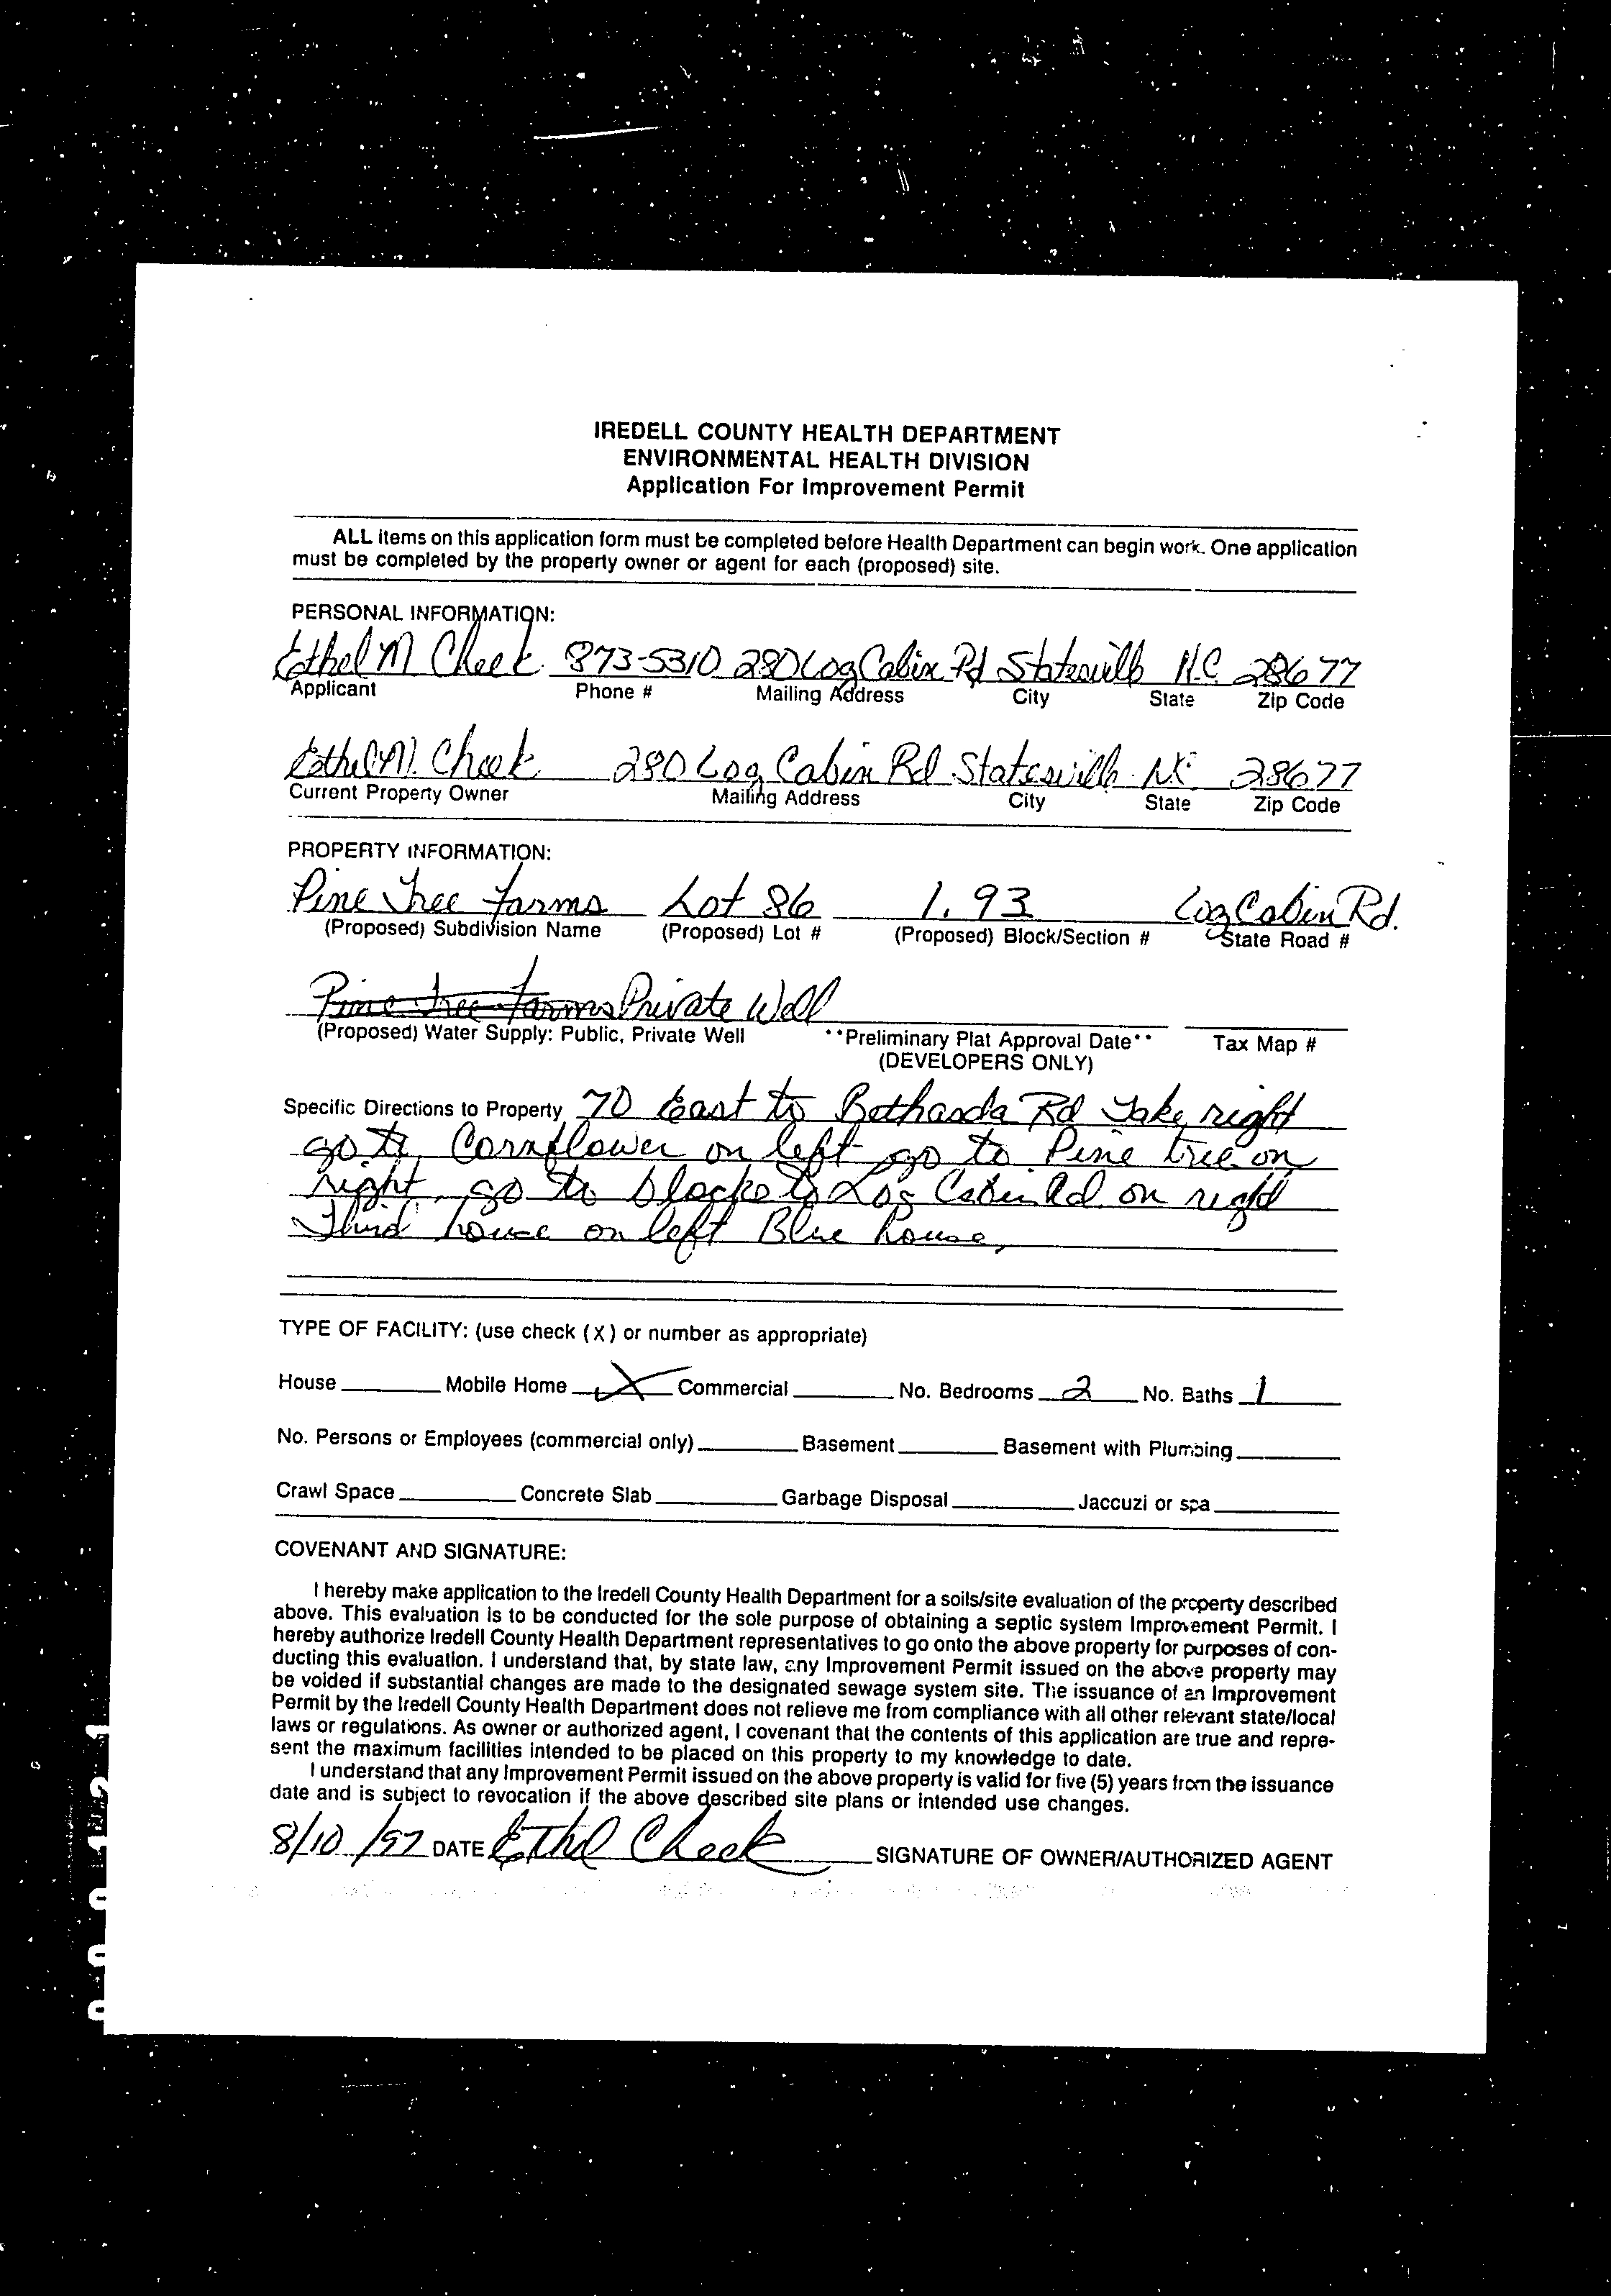 IREDELL COUNTY HEALTH DEPARTMENT
ENVIRONMENTAL HEALTH DIVISION
Application For Improvement Permit
ALL items on this application form must be completed before Health Department can begin work. One application
must be completed by the property owner or agent for each (proposed) site.
PERSONAL INFORMATION:
Ethel M Cheek 873-5310 280 Log Cabin Rd Statesville N.C 28677
Applicant Phone # Mailing Address City State Zip Code
Ethel M. Cheek 280 Log Cabin Rd Statesville NC 28677
Current Property Owner Mailing Address City State Zip Code
PROPERTY INFORMATION:
Pine Tree Farms Lot 86 1.93 Log Cabin Rd.
(Proposed) Subdivision Name (Proposed) Lot # (Proposed) Block/Section # State Road #
Pine Tree Farms Private Well
(Proposed) Water Supply: Public, Private Well **Preliminary Plat Approval Date** Tax Map #
(DEVELOPERS ONLY)
Specific Directions to Property 70 East to Bethasda Rd Take right
go to Cornflower on left go to Pine tree on
right, go to blocks to Log Cabin Rd. on right
Third house on left Blue house,
TYPE OF FACILITY: (use check (X) or number as appropriate)
House Mobile Home X Commercial No. Bedrooms 2 No. Baths 1
No. Persons or Employees (commercial only) Basement Basement with Plumbing
Crawl Space Concrete Slab Garbage Disposal Jaccuzi or spa
COVENANT AND SIGNATURE:
I hereby make application to the Iredell County Health Department for a soils/site evaluation of the property described
above. This evaluation is to be conducted for the sole purpose of obtaining a septic system Improvement Permit. I
hereby authorize Iredell County Health Department representatives to go onto the above property for purposes of con-
ducting this evaluation. I understand that, by state law, any Improvement Permit issued on the above property may
be voided if substantial changes are made to the designated sewage system site. The issuance of an Improvement
Permit by the Iredell County Health Department does not relieve me from compliance with all other relevant state/local
laws or regulations. As owner or authorized agent, I covenant that the contents of this application are true and repre-
sent the maximum facilities intended to be placed on this property to my knowledge to date.
I understand that any Improvement Permit issued on the above property is valid for five (5) years from the issuance
date and is subject to revocation if the above described site plans or intended use changes.
8/10/97 DATE Ethel Cheek SIGNATURE OF OWNER/AUTHORIZED AGENT